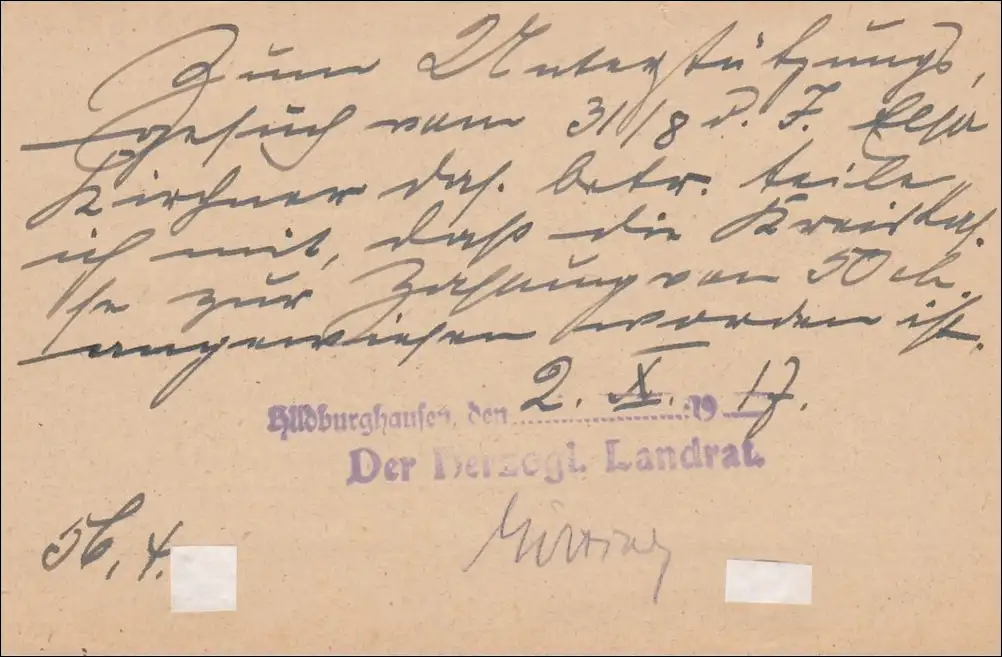 Zum Unterstützungs-
gesuch vom 31/8 d. J. Elsa
Kirchner das. betr. teile
ich mit, daß die Kreiskas-
se zur Zahlung von 50 M.
angewiesen worden ist.
Hildburghausen, den 2. X. 1917.
Der Herzogl. Landrat.